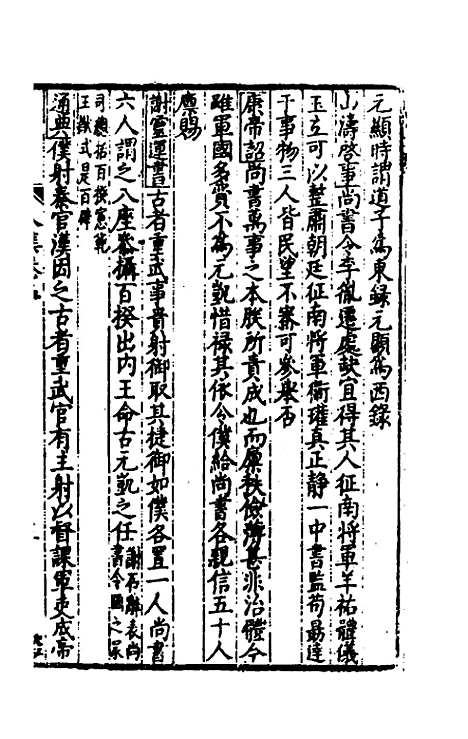 元顯時謂道子為東録元顯為西録
山濤啓事尚書令李胤遷處缺宜得其人征南將軍羊祐體儀
玉立可以整肅朝廷征南將軍衛瓘真正静一中書監荀朂達
于事物三人皆民望不審可參舉否
康帝詔尚書萬事之本朕所責成也而廩秩儉薄甚非治體今
雖軍國多費不為元凱惜禄其依令僕給尚書各親信五十人
廪賜
謝靈運晋書古者重武事貴射御取其捷御如僕各置一人尚書
六人謂之八座參攝百揆出内王命古元凱之任
謝石讓表尚
書令國之
司總括百揆憲範
王猷式是百辟
通典僕射秦官漢因之古者重武官有主射以督課軍吏成帝